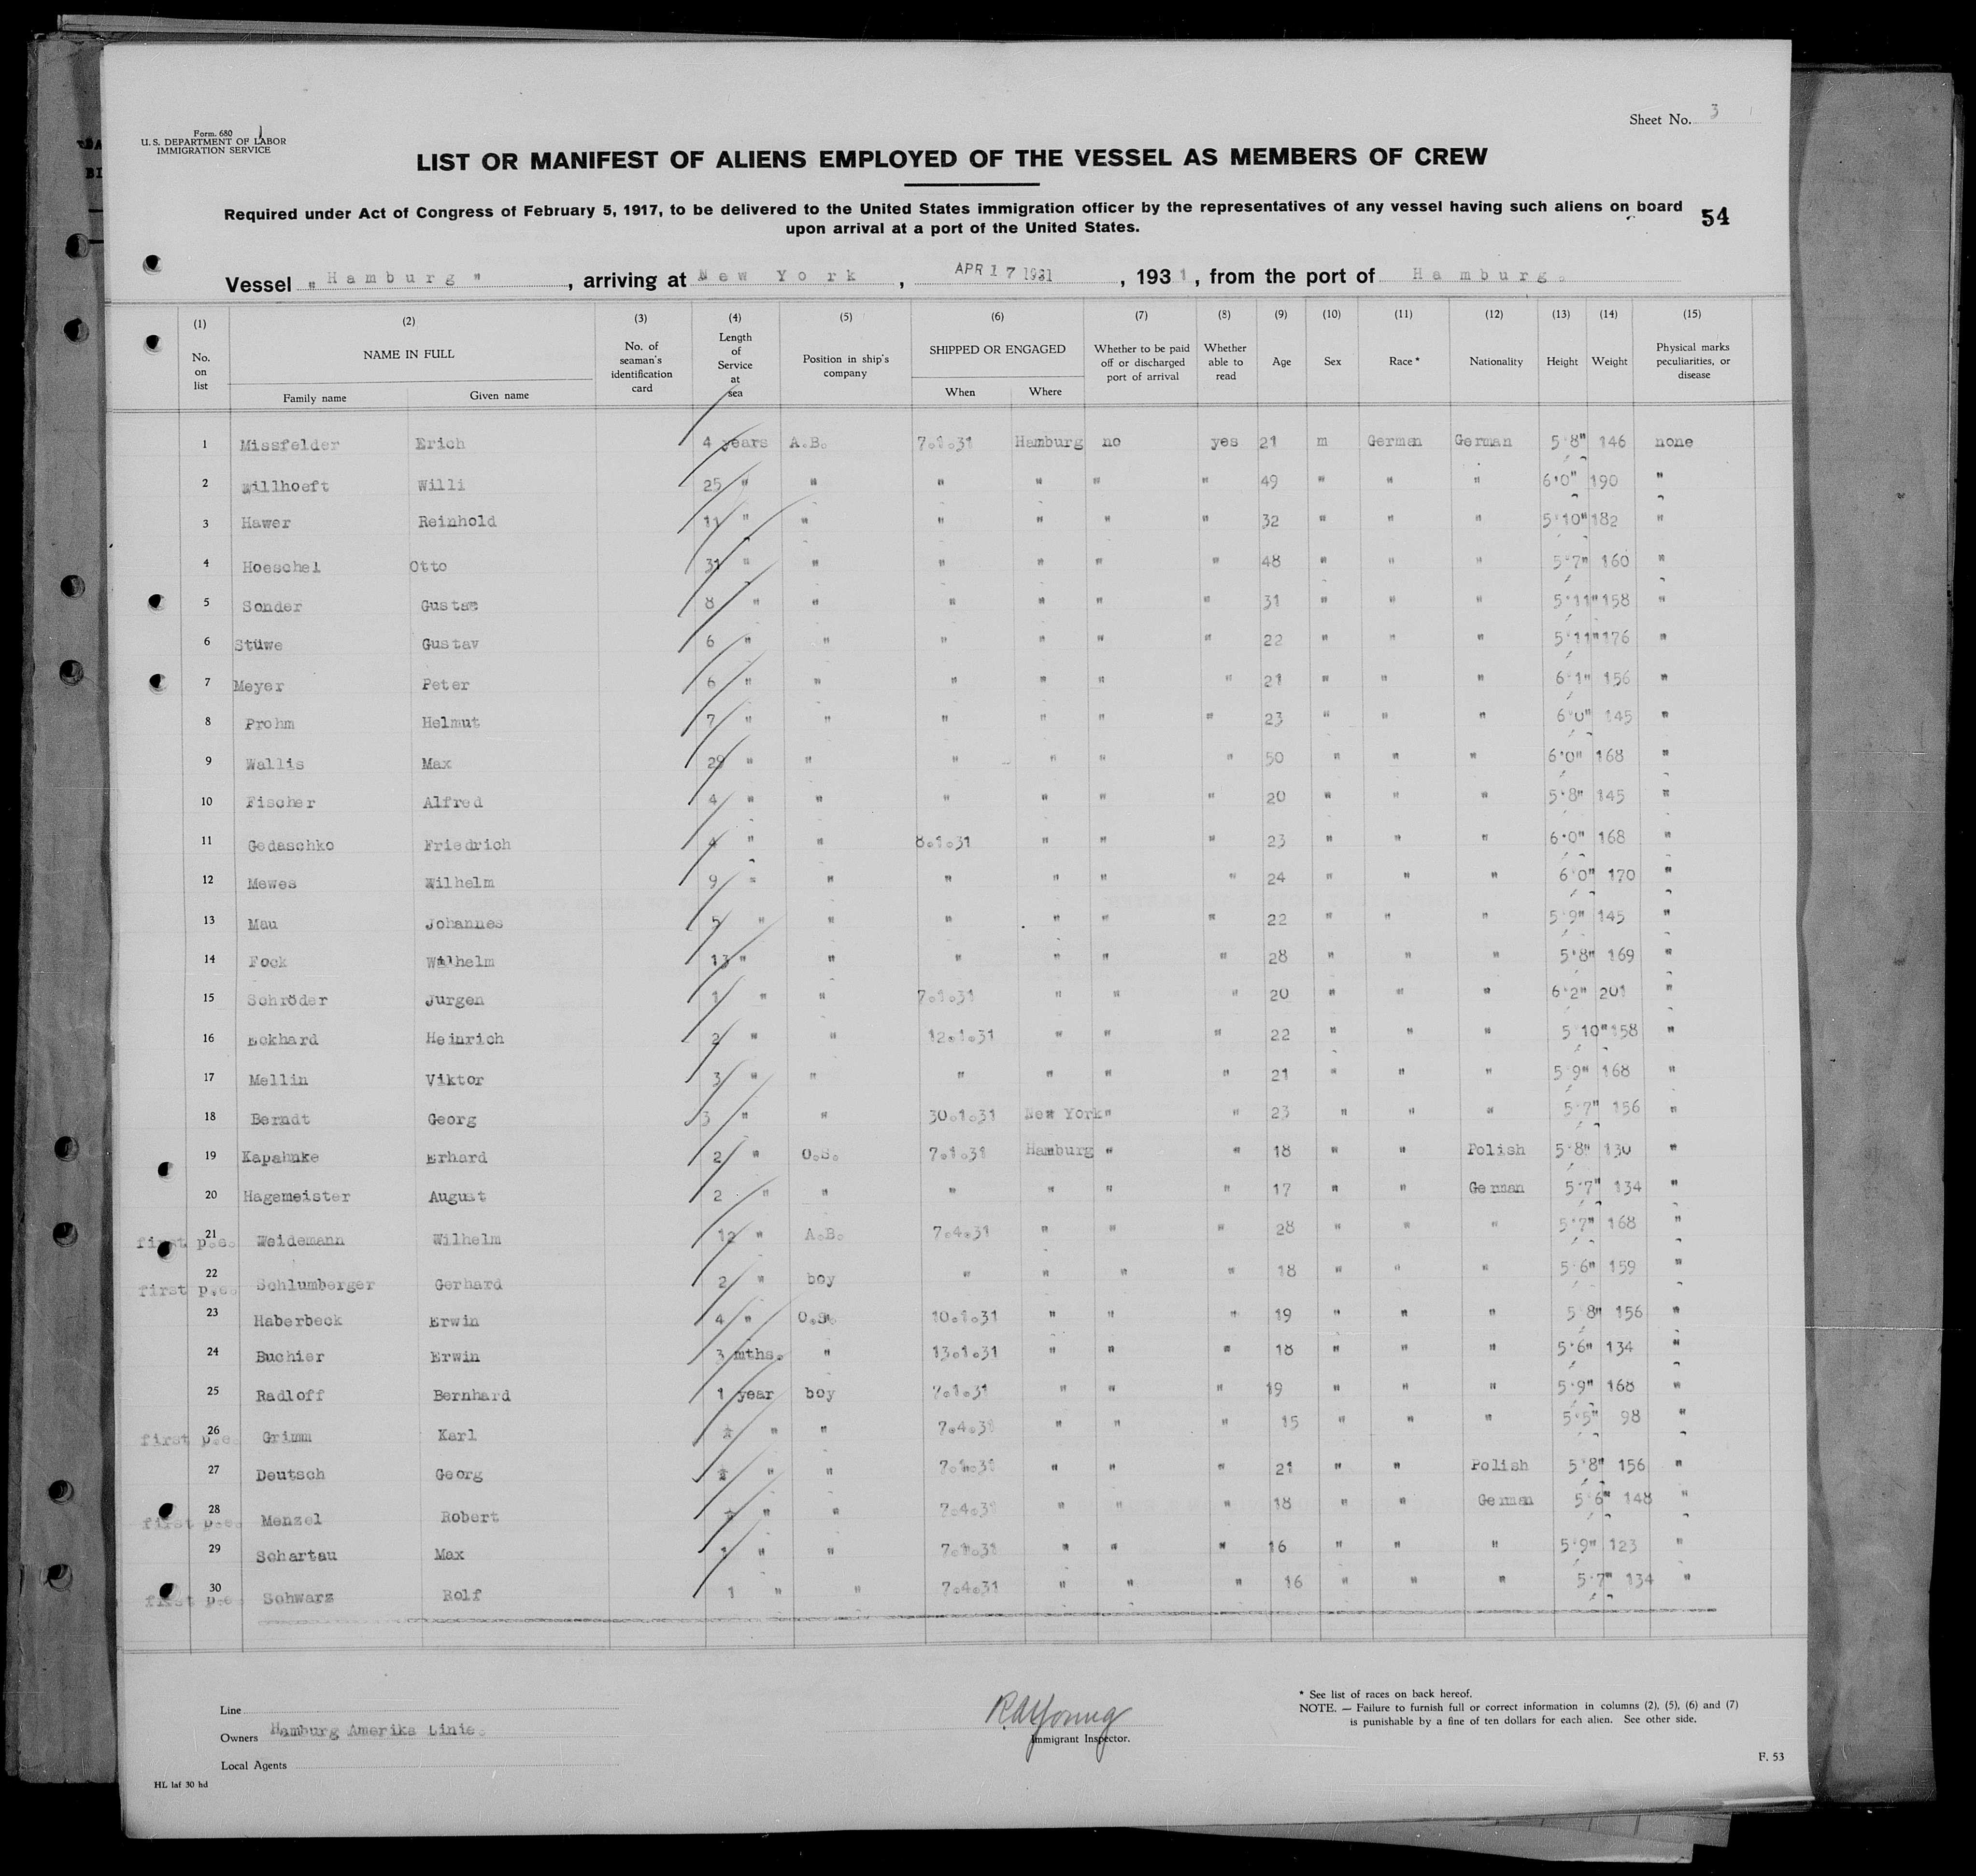 Form. 680
U. S. DEPARTMENT OF LABOR
IMMIGRATION SERVICE
Sheet No. 3
LIST OR MANIFEST OF ALIENS EMPLOYED OF THE VESSEL AS MEMBERS OF CREW
Required under Act of Congress of February 5, 1917, to be delivered to the United States immigration officer by the representatives of any vessel having such aliens on board
upon arrival at a port of the United States.
54
Vessel "Hamburg", arriving at New York, APR 17 1931, 1931, from the port of Hamburg.
(1) No. on list (2) NAME IN FULL Family name Given name (3) No. of seaman's identification card (4) Length of Service at sea (5) Position in ship's company (6) SHIPPED OR ENGAGED When Where (7) Whether to be paid off or discharged port of arrival (8) Whether able to read (9) Age (10) Sex (11) Race* (12) Nationality (13) Height (14) Weight (15) Physical marks peculiarities, or disease
1 Missfelder Erich 4 years A.B. 7.1.31 Hamburg no yes 21 m German German 5'8" 146 none
2 Willhoeft Willi 25 " " " " " " 49 " " " 6'0" 190 "
3 Hawer Reinhold 11 " " " " " " 32 " " " 5'10" 182 "
4 Hoeschel Otto 31 " " " " " " 48 " " " 5'7" 160 "
5 Sonder Gustav 8 " " " " " " 31 " " " 5'11" 158 "
6 Stüwe Gustav 6 " " " " " " 22 " " " 5'11" 176 "
7 Meyer Peter 6 " " " " " " 21 " " " 6'1" 156 "
8 Prohm Helmut 7 " " " " " " 23 " " " 6'0" 145 "
9 Wallis Max 29 " " " " " " 50 " " " 6'0" 168 "
10 Fischer Alfred 4 " " " " " " 20 " " " 5'8" 145 "
11 Gedaschko Friedrich 4 " " 8.1.31 " " " 23 " " " 6'0" 168 "
12 Mewes Wilhelm 9 " " " " " " 24 " " " 6'0" 170 "
13 Mau Johannes 5 " " " " " " 22 " " " 5'9" 145 "
14 Fock Wilhelm 13 " " " " " " 28 " " " 5'8" 169 "
15 Schröder Jurgen 1 " " 7.1.31 " " " 20 " " " 6'2" 201 "
16 Eckhard Heinrich 2 " " 12.1.31 " " " 22 " " " 5'10" 158 "
17 Mellin Viktor 3 " " " " " " 21 " " " 5'9" 168 "
18 Berndt Georg 3 " " 30.1.31 New York " " 23 " " " 5'7" 156 "
19 Kapahnke Erhard 2 " O.S. 7.1.31 Hamburg " " 18 " " Polish 5'8" 130 "
20 Hagemeister August 2 " " " " " " 17 " " German 5'7" 134 "
first p.e. 21 Weidemann Wilhelm 12 " A.B. 7.4.31 " " " 28 " " " 5'7" 168 "
first p.e. 22 Schlumberger Gerhard 2 " boy " " " " 18 " " " 5'6" 159 "
23 Haberbeck Erwin 4 " O.S. 10.1.31 " " " 19 " " " 5'8" 156 "
24 Buchier Erwin 3 mths. " 13.1.31 " " " 18 " " " 5'6" 134 "
25 Radloff Bernhard 1 year boy 7.1.31 " " " 19 " " " 5'9" 168 "
first p.e. 26 Grimm Karl " " 7.4.31 " " " 15 " " " 5'5" 98 "
27 Deutsch Georg " " 7.1.31 " " " 21 " " Polish 5'8" 156 "
first p.e. 28 Menzel Robert " " 7.4.31 " " " 18 " " German 5'6" 148 "
29 Schartau Max 1 " " 7.1.31 " " " 16 " " " 5'9" 123 "
first p.e. 30 Schwarz Rolf 1 " " 7.4.31 " " " 16 " " " 5'7" 134 "
Line
Owners Hamburg Amerika Linie.
Local Agents
HL laf 30 hd
Immigrant Inspector.
* See list of races on back hereof.
NOTE. — Failure to furnish full or correct information in columns (2), (5), (6) and (7)
is punishable by a fine of ten dollars for each alien. See other side.
F. 53